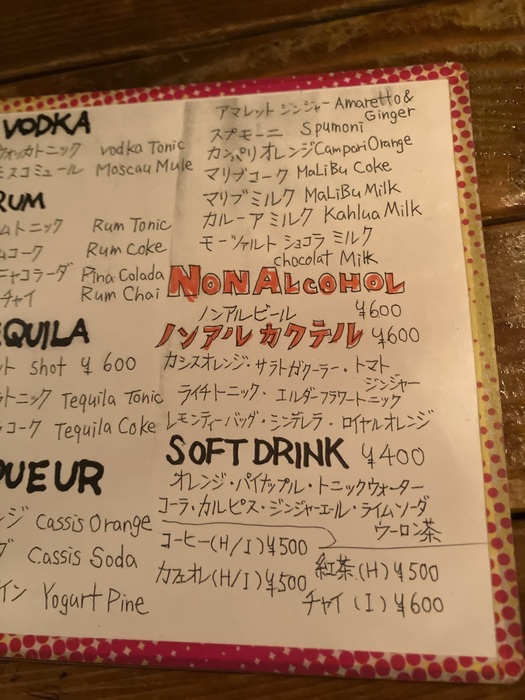 VODKA
ウォッカトニック vodka Tonic
モスコミュール Moscau Mule
RUM
ムトニック Rum Tonic
ムコーク Rum Coke
ニャコラーダ Pina Colada
チャイ Rum Chai
EQUILA
ット shot ¥600
ラトニック Tequila Tonic
ラコーク Tequila Coke
QUEUR
ンジ Cassis Orange
ダ Cassis Soda
イン Yogurt Pine
アマレット ジンジャー Amaretto &
Ginger
スプモーニ Spumoni
カンパリオレンジ Campari Orange
マリブコーク MaLiBu Coke
マリブミルク MaLiBu Milk
カルーアミルク Kahlua Milk
モーツァルト ショコラ ミルク
chocolat Milk
NON ALCOHOL
ノンアルビール ¥600
ノンアルカクテル ¥600
カシスオレンジ・サラトガクーラー・トマト
ジンジャー
ライチトニック・エルダーフラワートニック
レモンティーバッグ・シンデレラ・ロイヤルオレンジ
SOFT DRINK ¥400
オレンジ・パイナップル・トニックウォーター
コーラ・カルピス・ジンジャーエール・ライムソーダ
ウーロン茶
コーヒー(H/I)¥500
カフェオレ(H/I)¥500
紅茶(H)¥500
チャイ(I)¥600